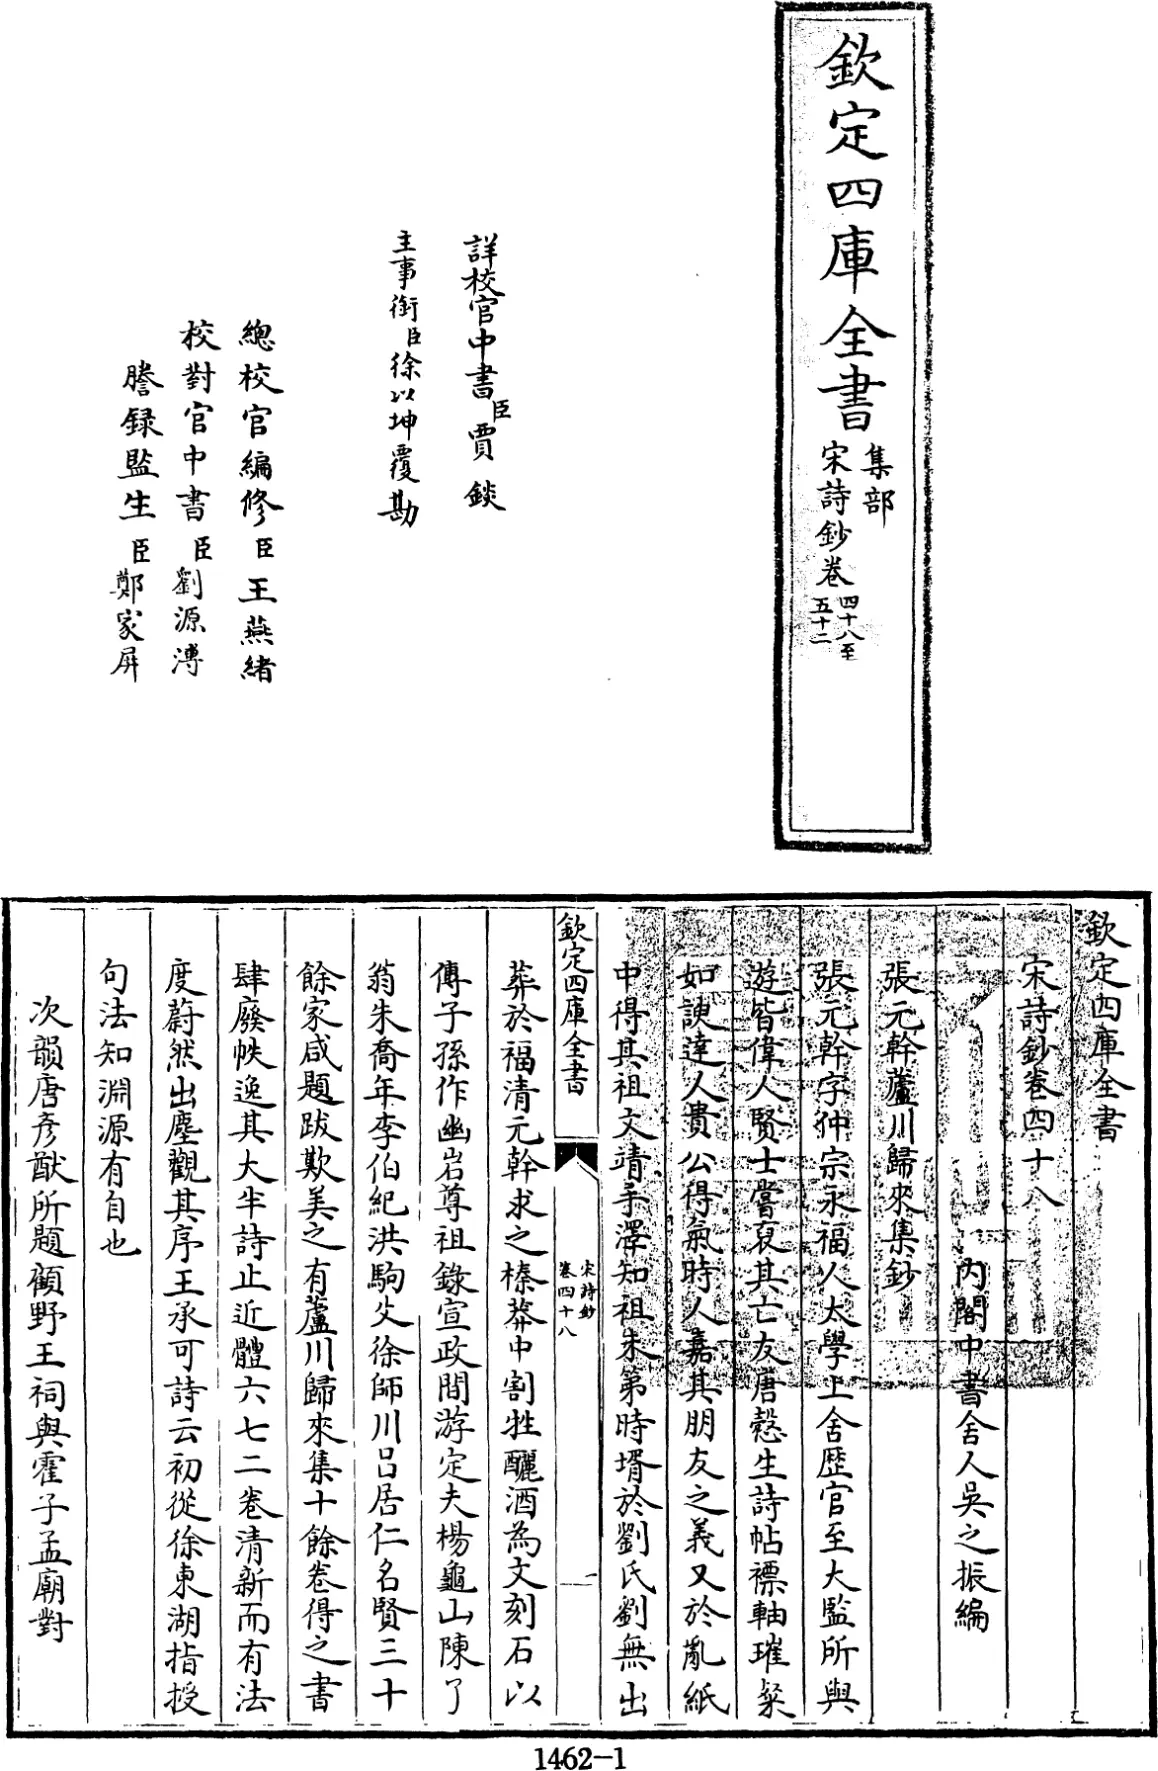 欽定四庫全書
集部
宋詩鈔卷
四十八至
五十二
詳校官中書臣賈錟
主事銜臣徐以坤覆勘
總校官編修臣王燕緒
校對官中書臣劉源溥
謄録監生臣鄭家屏
欽定四庫全書
宋詩鈔卷四十八
内閣中書舍人吳之振編
張元幹蘆川歸來集鈔
張元幹字仲宗永福人太學上舍歴官至大監所與
遊皆偉人賢士嘗裒其亡友唐慤生詩帖褾軸璀粲
如諛達人貴公得氣時人嘉其朋友之義又於亂紙
中得其祖文靖手澤知祖朱第時壻於劉氏劉無出
欽定四庫全書
宋詩鈔
卷四十八
一
葬於福清元幹求之榛莽中割牲釃酒為文刻石以
傳子孫作幽岩尊祖錄宣政間游定夫楊龜山陳了
翁朱喬年李伯紀洪駒父徐師川吕居仁名賢三十
餘家咸題跋歎美之有蘆川歸來集十餘卷得之書
肆廢帙逸其大半詩止近體六七二卷清新而有法
度蔚然出塵觀其序王承可詩云初從徐東湖指授
句法知淵源有自也
次韻唐彦猷所題顧野王祠與霍子孟廟對
1462-1